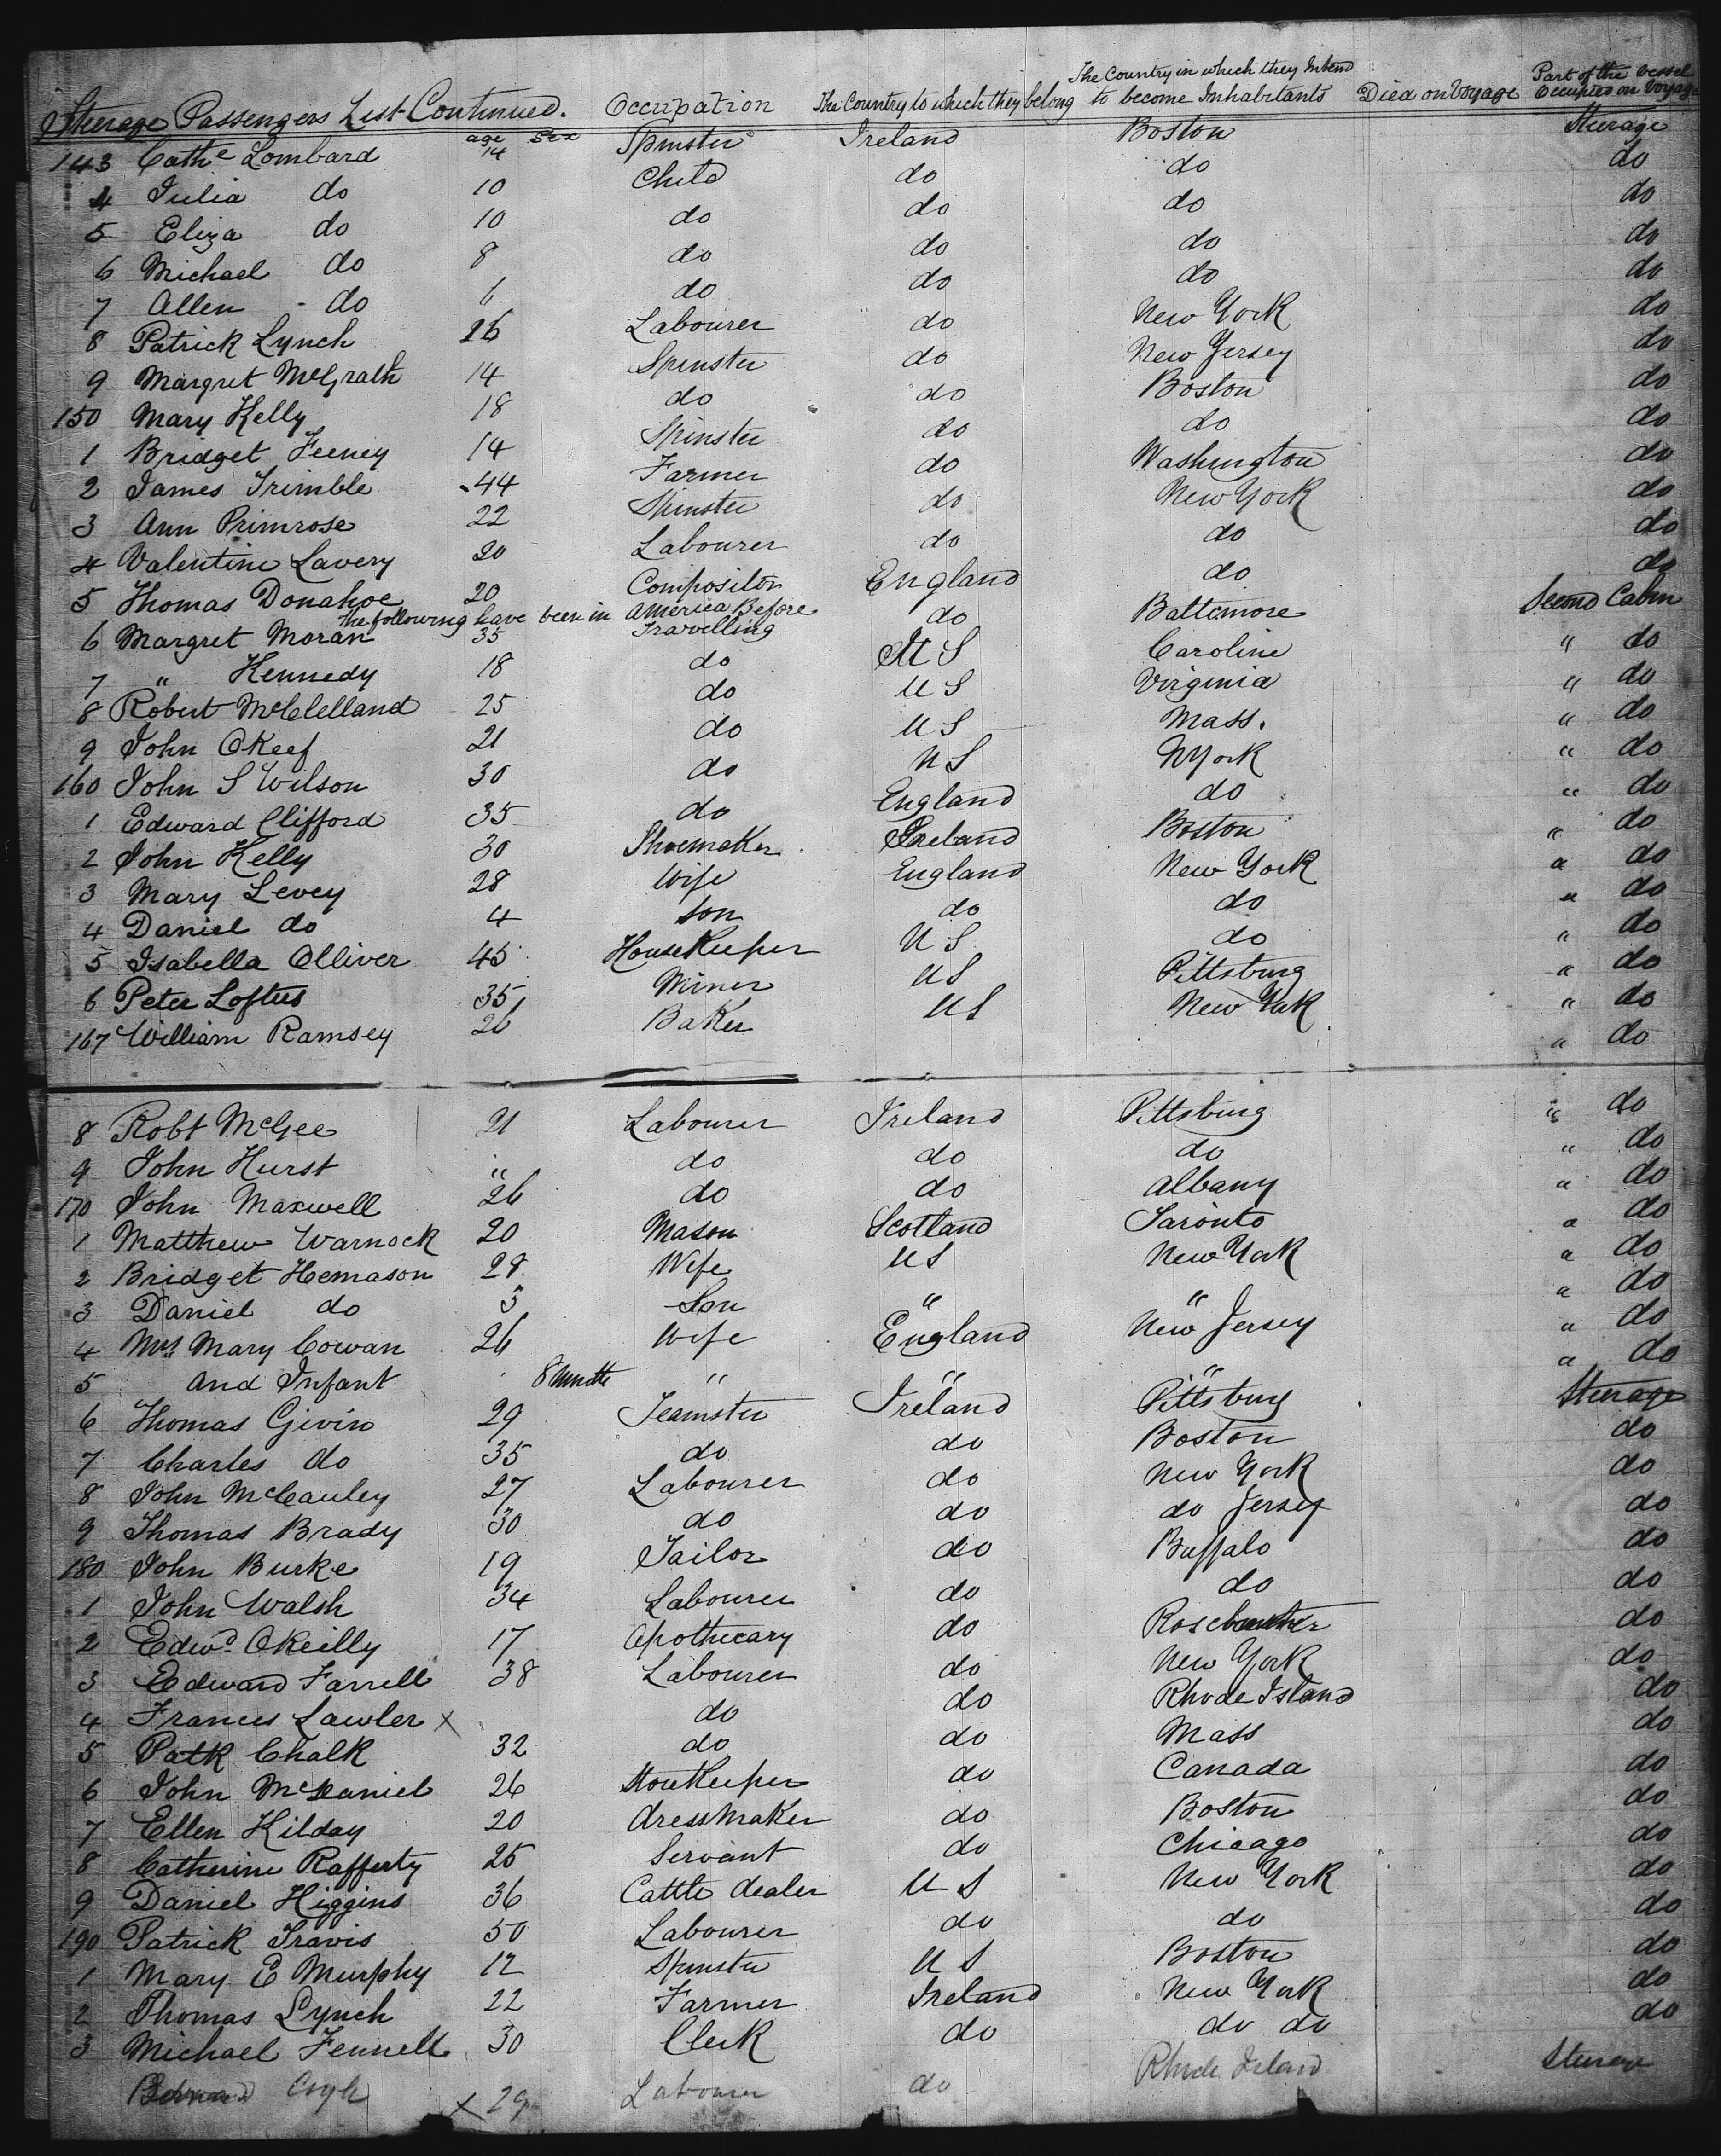 Steerage Passengers List Continued. Occupation The Country to which they belong The Country in which they Intend to become Inhabitants Died on Voyage Part of the Vessel Occupied on Voyage
age Sex
143 Cathe Lombard 14 Spinster Ireland Boston Steerage
4 Julia do 10 Child do do do
5 Eliza do 10 do do do do
6 Michael do 8 do do do do
7 Allen - do 6 do do do do
8 Patrick Lynch 26 Labourer do New York do
9 Margret McGrath 14 Spinster do New Jersey do
150 Mary Kelly 18 do do Boston do
1 Bridget Feeney 14 Spinster do do do
2 James Trimble 44 Farmer do Washington do
3 Ann Primrose 22 Spinster do New York do
4 Valentine Lavery 20 Labourer do do do
5 Thomas Donahoe 20 Compositor England do do
the following have been in America Before
6 Margret Moran 35 Travelling do Baltimore Second Cabin
7 " Kennedy 18 do U S Caroline " do
8 Robert McClelland 25 do U S Virginia " do
9 John OKeef 21 do U S Mass. " do
160 John S Wilson 30 do U S NYork " do
1 Edward Clifford 35 do England do " do
2 John Kelly 30 Shoemaker Ireland Boston " do
3 Mary Levey 28 Wife England New York " do
4 Daniel do 4 Son do do " do
5 Isabella Olliver 45 HouseKeeper U S do " do
6 Peter Loftus 35 Miner US Pittsburg " do
167 William Ramsey 26 Baker US New York " do
8 Robt McGee 21 Labourer Ireland Pittsburg " do
9 John Hurst " do do do " do
170 John Maxwell 26 do do Albany " do
1 Matthew Warnock 20 Mason Scotland Taronto " do
2 Bridget Hemason 28 Wife US New York " do
3 Daniel do 3 Son " " " do
4 Mrs Mary Cowan 26 Wife England New Jersey " do
5 and Infant 8 " " " " do
6 Thomas Givin 29 Teamster Ireland Pittsburg Steerage
7 Charles do 35 do do Boston do
8 John McCauley 27 Labourer do New York do
9 Thomas Brady 30 do do do Jersey do
180 John Burke 19 Tailor do Buffalo do
1 John Walsh 34 Labourer do do do
2 Edwd OKeilly 17 Apothecary do do
3 Edward Farrell 38 Labourer do New York do
4 Frances Lawler x do do Rhode Island do
5 Patk Chalk 32 do do Mass do
6 John McDaniel 26 StoreKeeper do Canada do
7 Ellen Kilday 20 dressmaker do Boston do
8 Catherine Rafferty 25 Servant do Chicago do
9 Daniel Higgins 36 Cattle dealer U S New York do
190 Patrick Travis 50 Labourer do do do
1 Mary E Murphy 12 Spinster U S Boston do
2 Thomas Lynch 22 Farmer Ireland New York do
3 Michael Fennell 30 Clerk do do do do
x 29 Labourer do Rhode Island Steerage